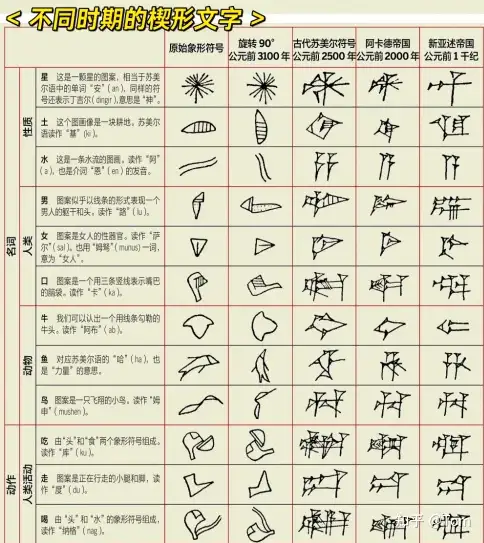 < 不同时期的楔形文字 >
原始象形符号
旋转 90°
公元前 3100 年
古代苏美尔符号
公元前 2500 年
阿卡德帝国
公元前 2000 年
新亚述帝国
公元前 1 千纪
名词
性质
星 这是一颗星的图案，相当于苏美
尔语中的单词“安”(an)，同样的符
号还表示丁吉尔(dingir)，意思是“神”。
土 这个图画像是一块耕地。苏美尔
语读作“基”(ki)。
水 这是一条水流的图画，读作“阿”
(a)，也是介词“恩”(en)的发音。
人类
男 图案似乎以线条的形式表现一个
男人的躯干和头。读作“路”(lu)。
女 图案是女人的性器官。读作“萨
尔”(sal)。也用“姆弩”(munus)一词，
意为“女人”。
口 图案是一个用三条竖线表示嘴巴
的脑袋。读作“卡”(ka)。
动物
牛 我们可以认出一个用线条勾勒的
牛头。读作“阿布”(ab)。
鱼 对应苏美尔语的“哈”(ha)，也
是“力量”的意思。
鸟 图案是一只飞翔的小鸟。读作“姆
申”(mushen)。
动作
人类活动
吃 由“头”和“食”两个象形符号组成。
读作“库”(ku)。
走 图案是正在行走的小腿和脚，读
作“度”(du)。
喝 由“头”和“水”的象形符号组成，
读作“纳格”(nag)。
知乎